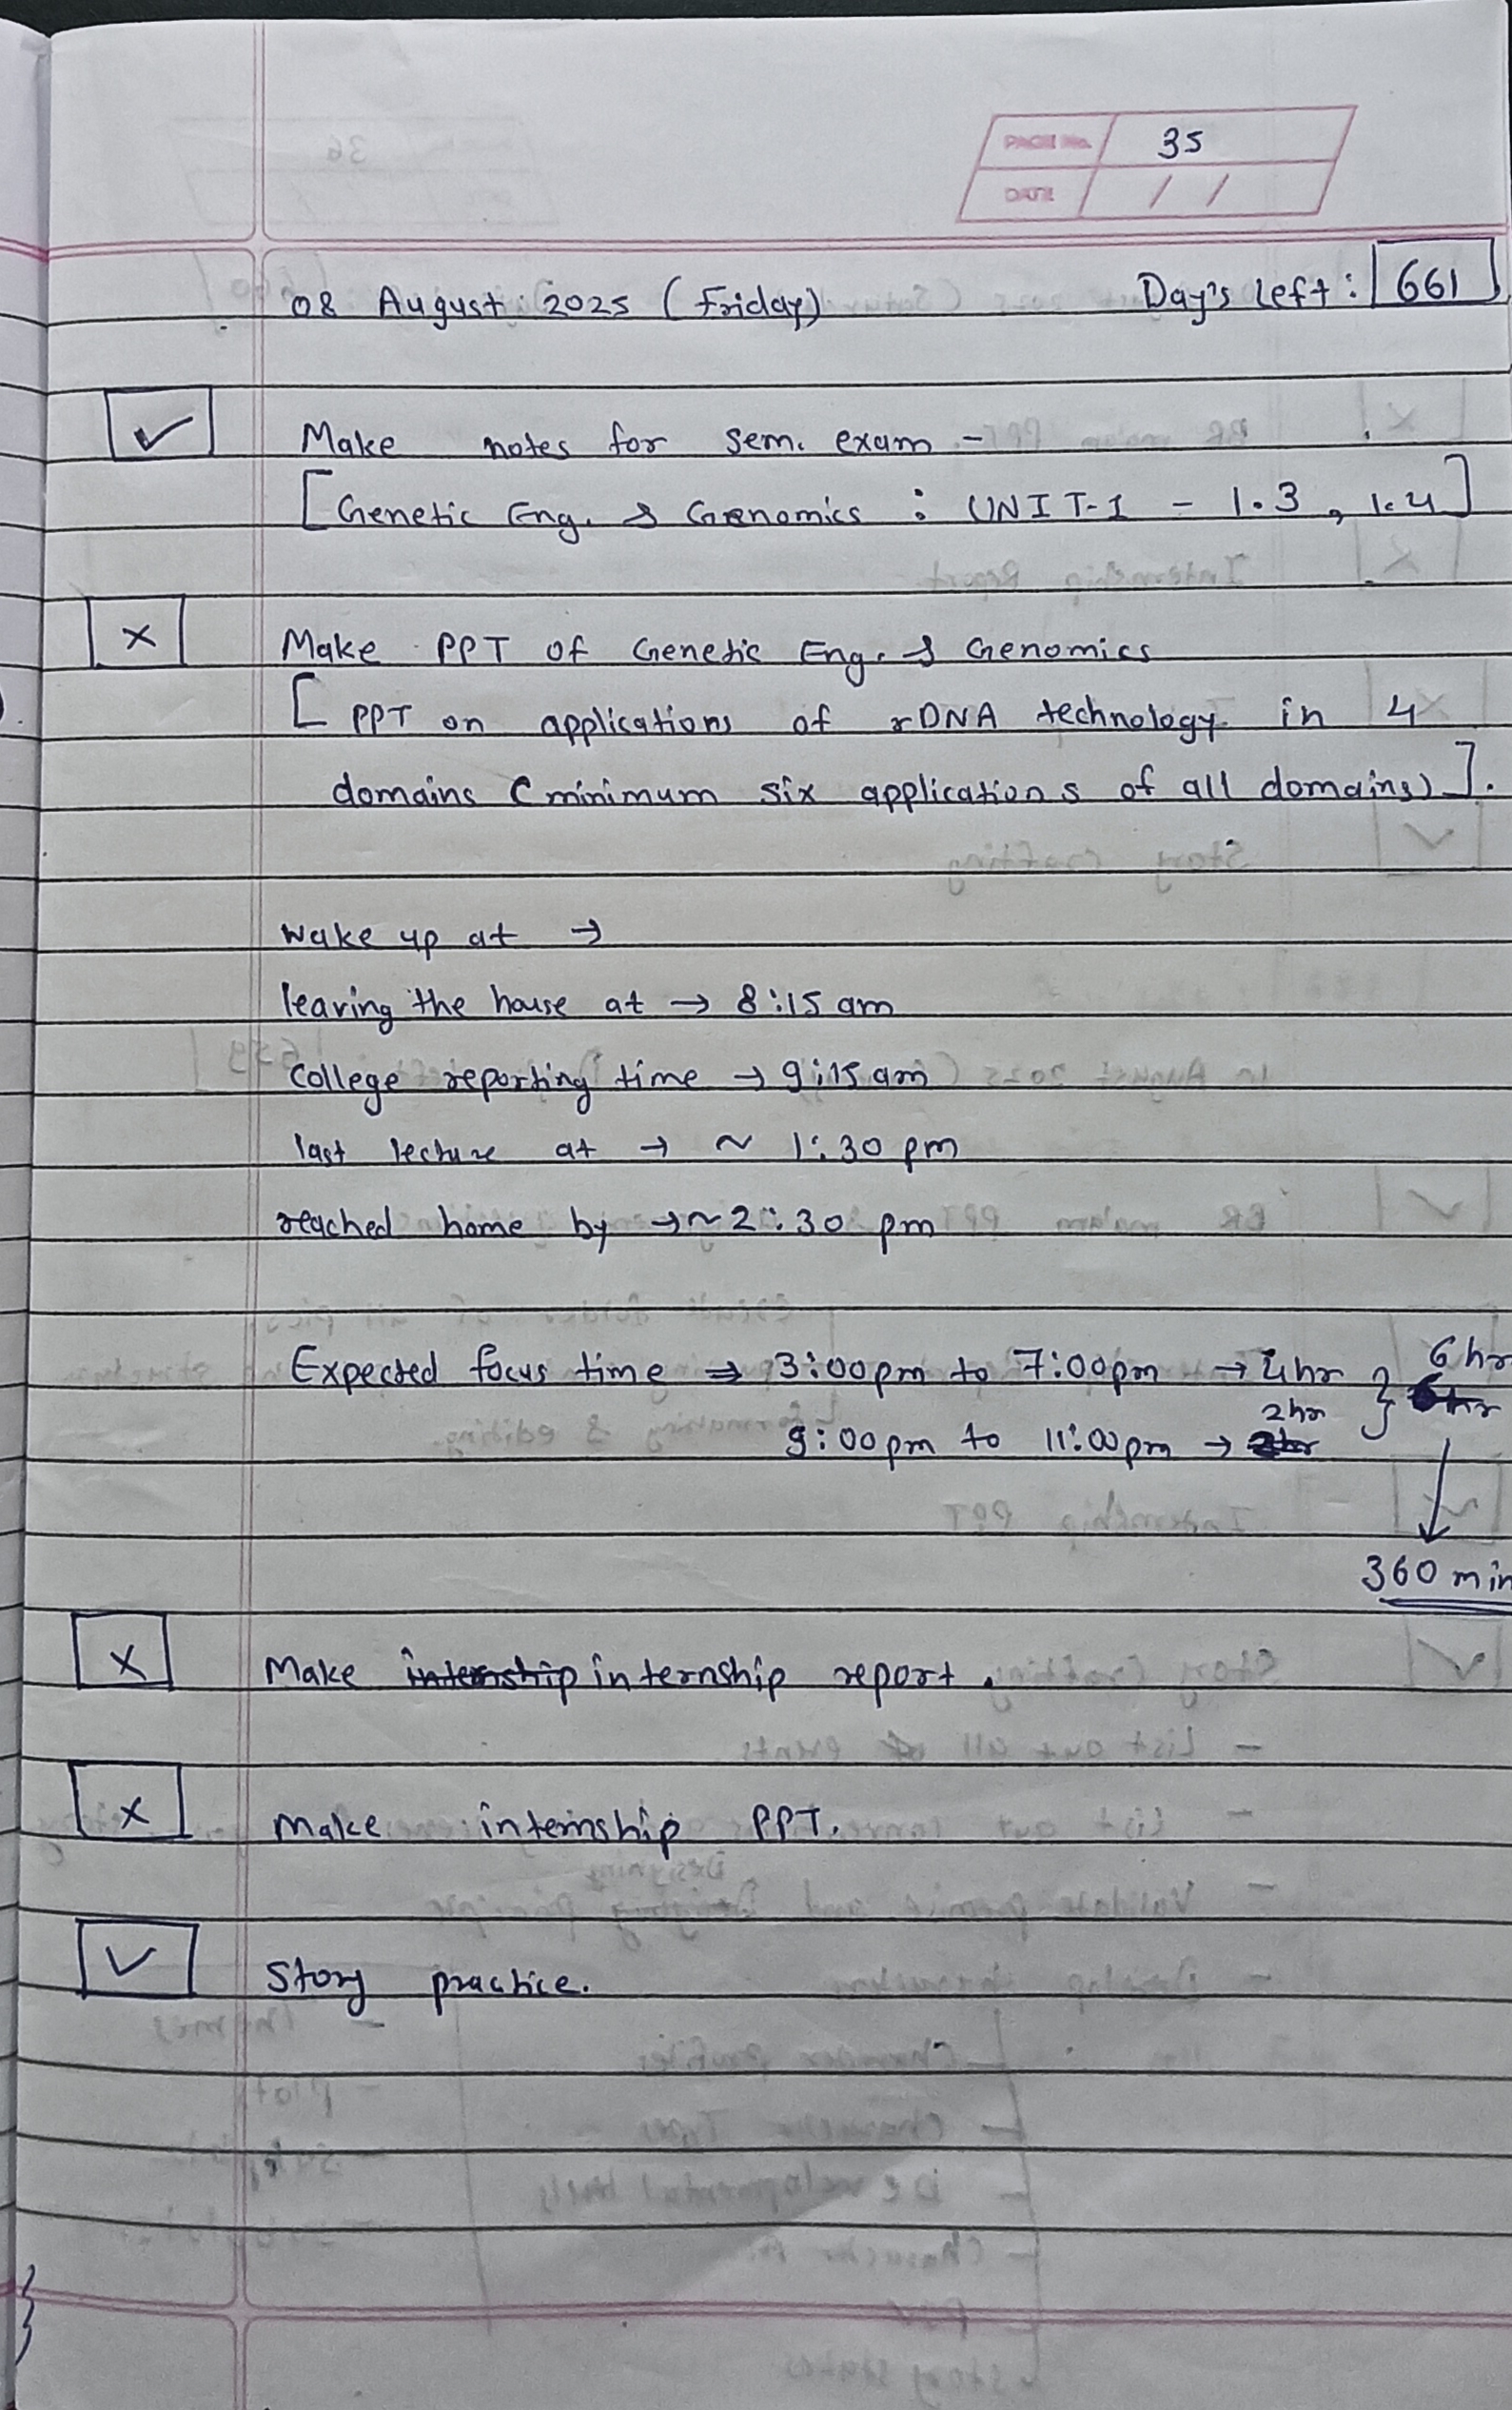 PAGE No. 35
DATE / /
08 August 2025 (Friday) Day's Left: 661
✓ Make notes for sem. exam -
[Genetic Eng. & Genomics : UNIT-1 - 1.3, 1.4]
x Make PPT of Genetic Eng. & Genomics
[PPT on applications of rDNA technology in 4
domains (minimum six applications of all domains)].
Wake up at →
leaving the house at → 8:15 am
College reporting time → 9:15 am
last lecture at → ~ 1:30 pm
reached home by → ~ 2:30 pm
Expected focus time ⇒ 3:00pm to 7:00pm → 4hr } 6 hr
2hr
9:00pm to 11:00pm →
360 min
x Make internship internship report.
x Make internship PPT.
✓ Story practice.